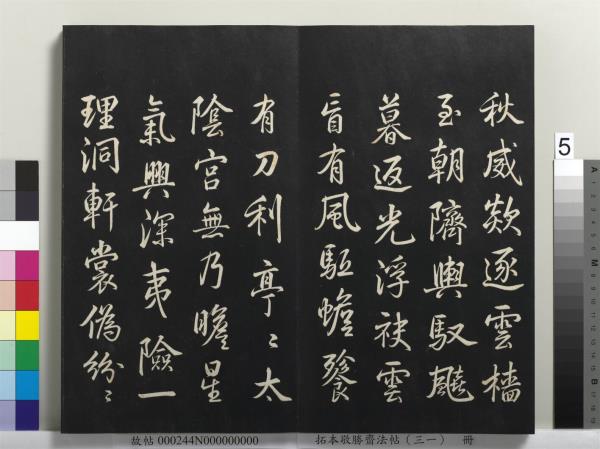 秋威歘逐雲檣
至朝隮輿馭飈
暮返光浮袂雲
盲有風駈蟾飱
有刀利亭〻太
陰宮無乃瞻星
氣興深夷險一
理洞軒裳偽紛〻
故帖 000244N000000000
拓本敬勝齋法帖（三一） 冊
5
A
M
B